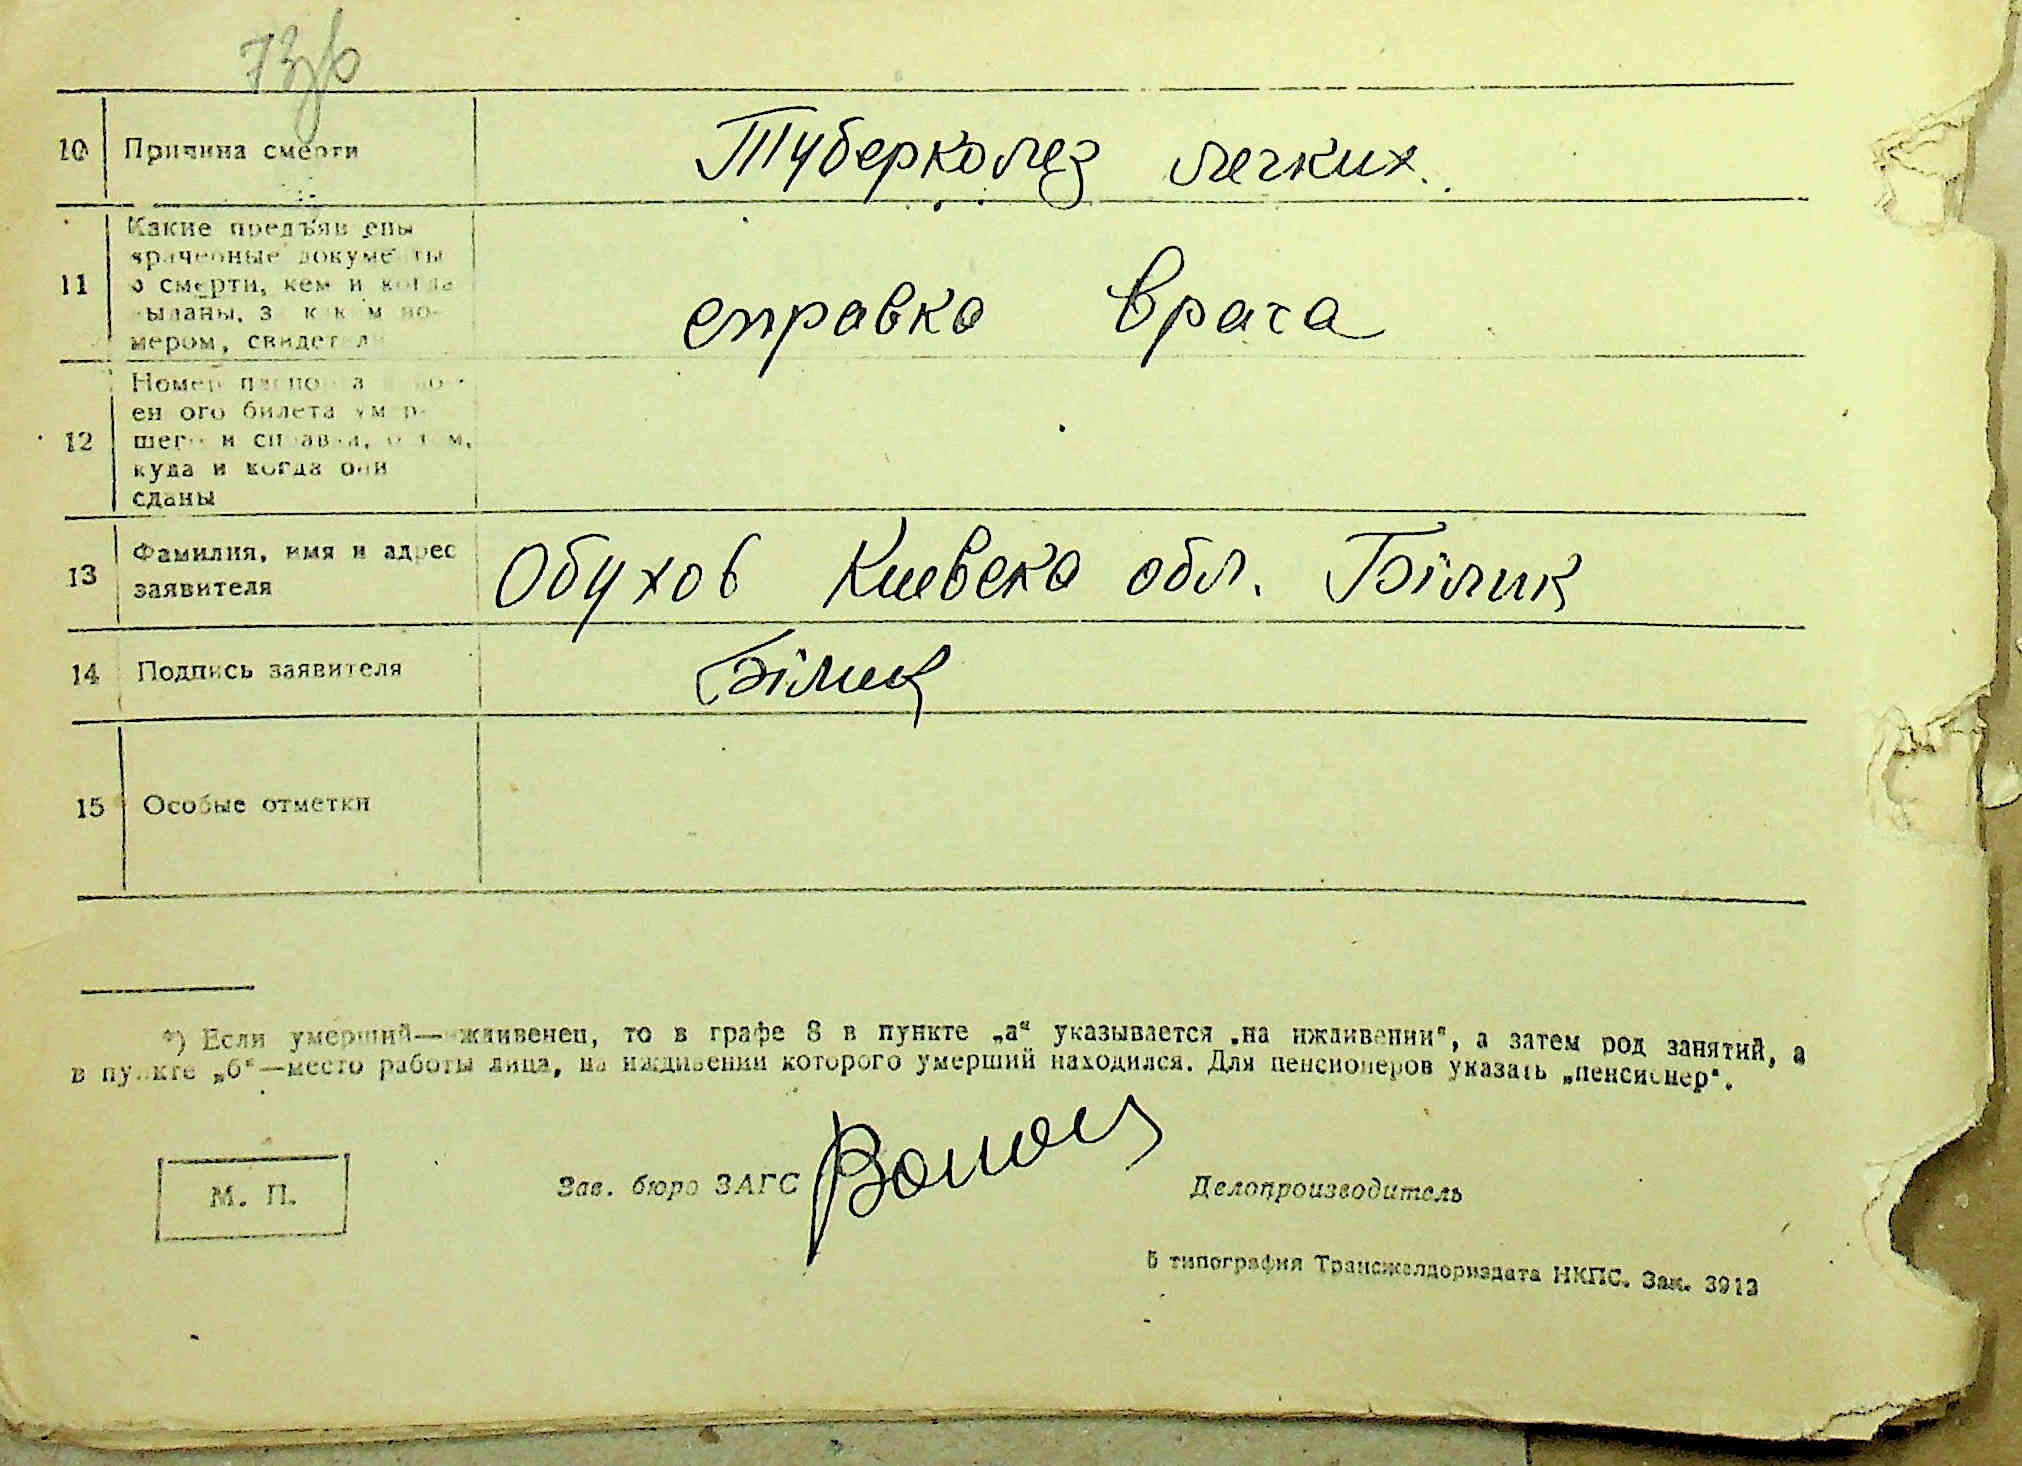 10 Причина смерти Туберколез легких.
11 Какие предъявлены
врачебные документы
о смерти, кем и когда
выданы, за каким но-
мером, свидетели
справка врача
12 Номер паспорта и во-
енного билета умер-
шего и справка, о том,
куда и когда они
сданы
13 Фамилия, имя и адрес
заявителя
Обухов Киевска обл. Білик
14 Подпись заявителя Білик
15 Особые отметки
*) Если умерший—иждивенец, то в графе 8 в пункте „а“ указывается „на иждивении“, а затем род занятий, а
в пункте „б“—место работы лица, на иждивении которого умерший находился. Для пенсионеров указать „пенсионер“.
М. П.
Зав. бюро ЗАГС
Делопроизводитель
5 типография Трансжелдориздата НКПС. Зак. 3913